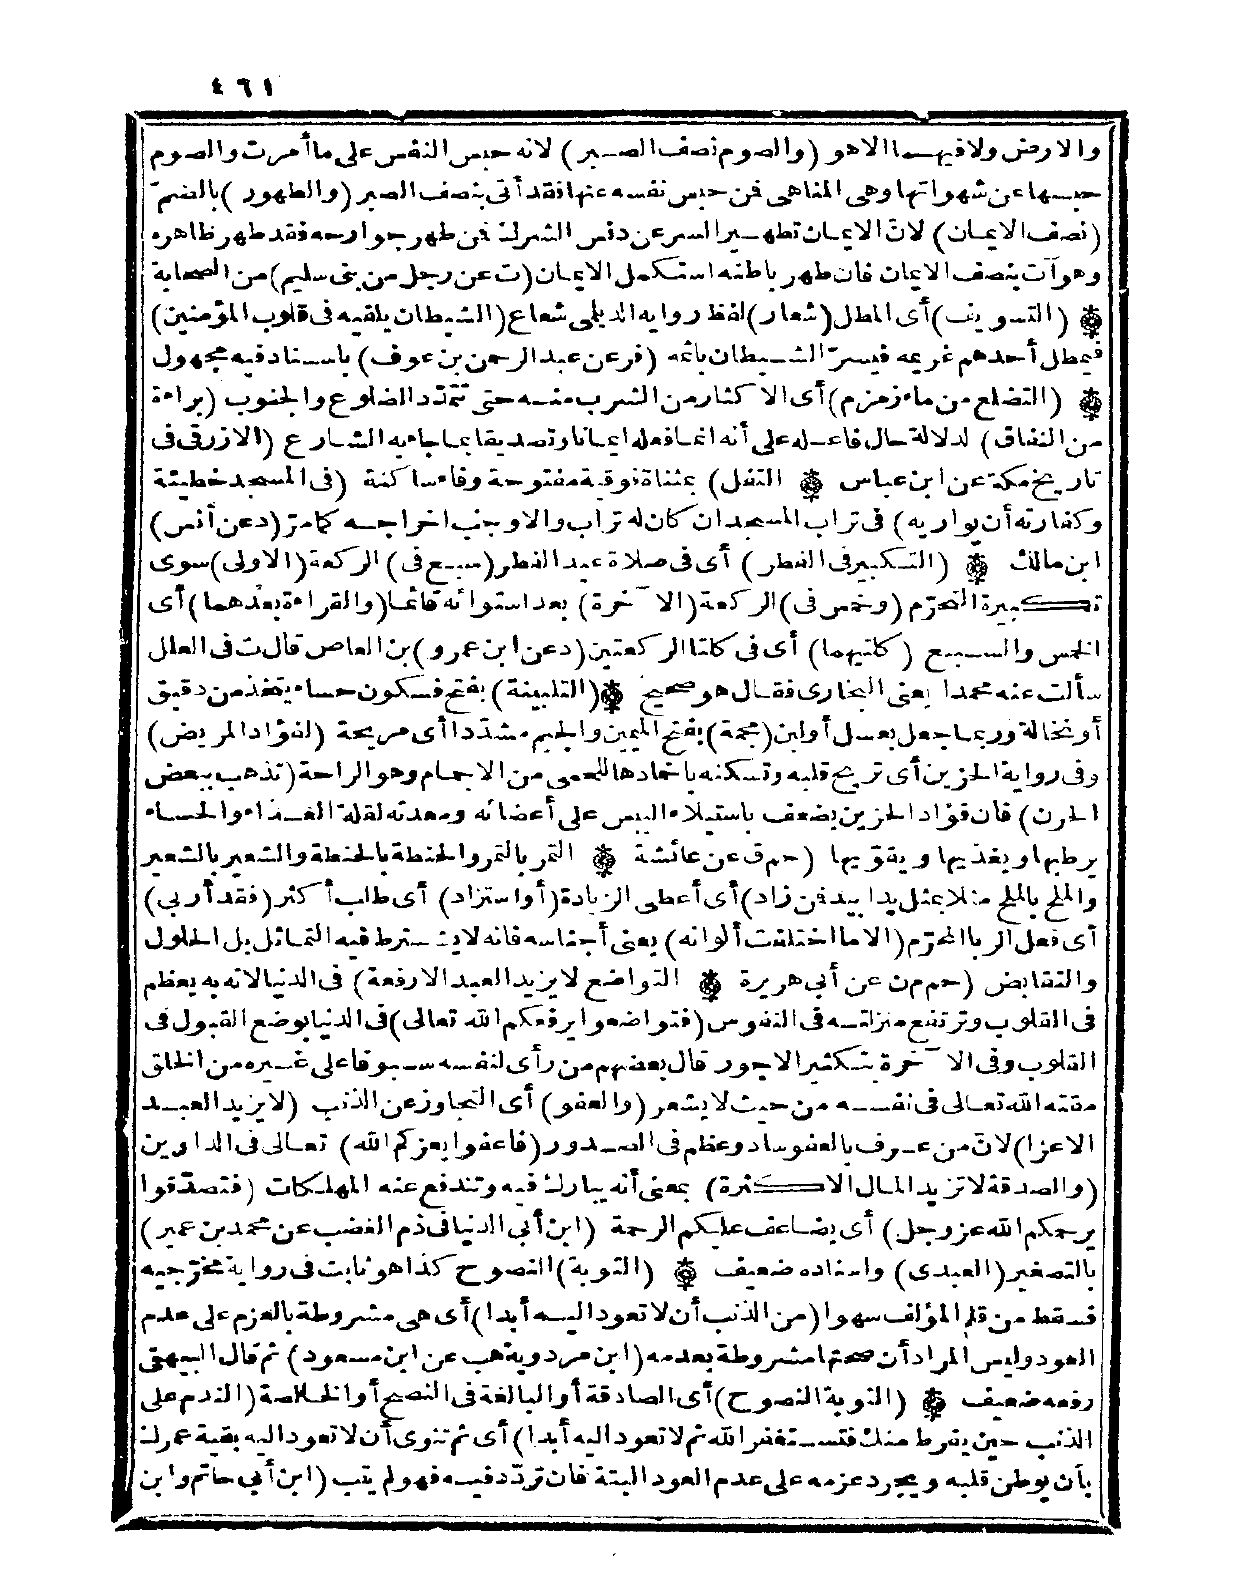 ٤٦١
والارض ولا فيهما الا هو (والصوم نصف الصبر) لانه حبس النفس على ما أمرت والصوم
حبسها عن شهواتها وهى المناهى فن حبس نفسه عنها فقد أتى بنصف الصبر (والطهور) بالضم
(نصف الايمان) لان الايمان تطهير السر عن دنس الشرك فن طهر جوارحه فقد طهر ظاهره
وهو آت بنصف الايمان فان طهر باطنه استكمل الايمان (ت عن رجل من بنى سليم) من الصحابة
(التسويف) أى المطل (شعار) لفظ رواية الديلى شعاع (الشيطان يلقيه فى قلوب المؤمنين)
فيمطل أحدهم غريمه فيسر الشيطان باثمه (فر عن عبد الرحمن بن عوف) باسناد فيه مجهول
(التضلع من ماء زمزم) أى الاكثار من الشرب منه حتى تتمدد الضلوع والجنوب (براءة
من النفاق) لدلالة حال فاعله على أنه انما فعله ايمانا وتصديقا بما جاء به الشارع (الازرقى فى
تاريخ مكة عن ابن عباس التفل) بمثناة فوقية مفتوحة وفاء ساكنة (فى المسجد خطيئة
وكفارته أن يواريه) فى تراب المسجد ان كان له تراب والاوجب اخراجه كما مر (د عن أنس)
ابن مالك (التكبير فى الفطر) أى فى صلاة عيد الفطر (سبع فى) الركعة (الاولى) سوى
تكبيرة التحرم (وخمس فى) الركعة (الآخرة) بعد استوائه قائما (والقراءة بعدهما) أى
الخمس والسبع (كلتيهما) أى فى كلتا الركعتين (د عن ابن عمرو) بن العاص قال ت فى العلل
سألت عنه محمدا يعنى البخارى فقال هو صحيح (التلبينة) بفتح فسكون حساء يتخذ من دقيق
أو نخالة وربما جعل بعسل أو لبن (مجمة) بفتح الميمين والجيم مشددا أى مريحة (لفؤاد المريض)
وفى رواية الحزين أى تريح قلبه وتسكنه باخمادها للحمى من الاجمام وهو الراحة (تذهب ببعض
الحزن) فان فؤاد الحزين يضعف باستيلاء اليبس على أعضائه ومعدته لقلة الغذاء والحساء
يرطبها ويغذيها ويقويها (حم ق عن عائشة التمر بالتمر والحنطة بالحنطة والشعير بالشعير
والملح بالملح مثلا بمثل يدا بيد فن زاد) أى أعطى الزيادة (أو استزاد) أى طلب أكثر (فقد أربى)
أى فعل الربا المحرم (الا ما اختلفت ألوانه) يعنى أجناسه فانه لا يشترط فيه التماثل بل الحلول
والتقابض (حم م ن عن أبى هريرة التواضع لا يزيد العبد الا رفعة) فى الدنيا لانه به يعظم
فى القلوب وترتفع منزلته فى النفوس (فتواضعوا يرفعكم الله تعالى) فى الدنيا بوضع القبول فى
القلوب وفى الآخرة بتكثير الاجور قال بعضهم من رأى لنفسه سبوقا على غيره من الخلق
مقته الله تعالى فى نفسه من حيث لا يشعر (والعفو) أى التجاوز عن الذنب (لا يزيد العبد
الا عزا) لان من عرف بالعفو ساد وعظم فى الصدور (فاعفوا يعزكم الله) تعالى فى الدارين
(والصدقة لا تزيد المال الا كثرة) بمعنى أنه يبارك فيه وتندفع عنه المهلكات (فتصدقوا
يرحمكم الله عز وجل) أى يضاعف عليكم الرحمة (ابن أبى الدنيا فى ذم الغضب عن محمد بن عمير)
بالتصغير (العبدى) واسناده ضعيف (التوبة) النصوح كذا هو ثابت فى رواية مخرجيه
فسقط من قلم المؤلف سهوا (من الذنب أن لا تعود اليه أبدا) أى هى مشروطة بالعزم على عدم
العود وليس المراد أن صحتها مشروطة بعدمه (ابن مردويه هب عن ابن مسعود) ثم قال البيهقى
رفعه ضعيف (التوبة النصوح) أى الصادقة أو البالغة فى النصح أو الخالصة (الندم على
الذنب حين يفرط منك فتستغفر الله ثم لا تعود اليه أبدا) أى ثم تنوى أن لا تعود اليه بقية عمرك
بأن يوطن قلبه ويجرد عزمه على عدم العود البتة فان تردد فيه فهو لم يتب (ابن أبى حاتم وابن